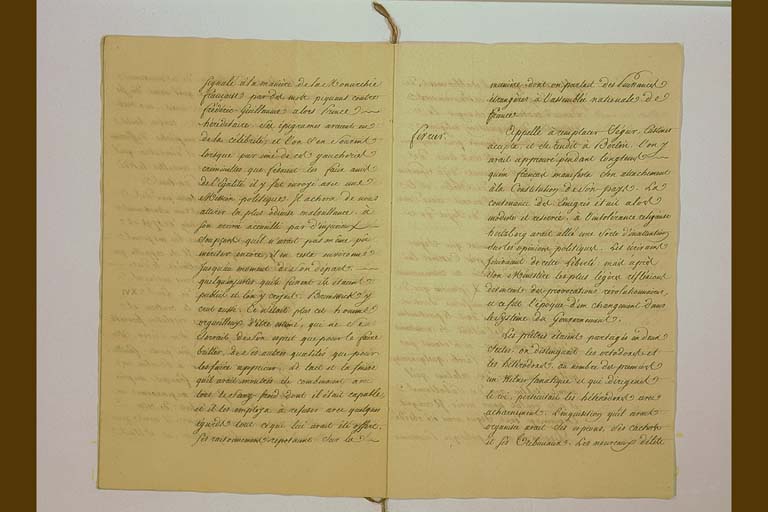 signalé à la manière de la Monarchie
française par des mots piquans contre
frédéric Guillaume alors Prince
héréditaire. Ses épigrames avaient eu
de la célébrité, et l'on s'en souvint
lorsque par une de ces gaucheries
criminelles que firent les faux amis
de l'égalité il y fut envoyé avec une
Mission politique. Il acheva de nous
attirer la plus odieuse malveillance. à
son entrée accueilli par d'injurieux
soupçons qu'il n'avait pas même pu
mériter encore, il en resta environné
jusqu'au moment de son départ.
quelqu'injustes qu'ils fussent ils étaient
publics et l'on y croyait. Brunswick y
crut aussi. Ce n'était plus cet homme
orgueilleux d'être estimé, qui ne se
servait de son esprit que pour le faire
briller, de ses autres qualités que pour
les faire apprécier, le tact et la finesse
qu'il avait montrés se combinaient avec
tout le sang froid dont il était capable,
et il les employa à refuser avec quelques
égards tout ce qui lui avait été offert.
Ses raisonnemens reposaient sur la
manière dont on parlait des Puissances
étrangères à l'assemblée nationale de
france.
Appellé à remplacer Ségur, Custine
accepta, et se rendit à Berlin. l'on y
avait apprécié pendant longtems
qu'un français manifesta son attachement
à la Constitution de son pays. La
contenance des Emigrés était alors
modeste et réservée. à l'intolérance religieuse
hertzberg avait allié une sorte d'insouciance
sur les opinions politiques. Les écrivains
jouissaient de cette liberté mais après
son Ministère les plus légères réflexions
devinrent des provocations révolutionnaires,
et ce fut l'époque d'un changement dans
le Système du Gouvernement.
Les prêtres étaient partagés en deux
Sectes. on distinguait les ortodoxes et
les hétérodoxes. au nombre des premiers
un Hilmer fanatique et qui dirigeait
le roi, persécutait les hétérodoxes avec
acharnement. L'inquisition qu'il avait
organisée avait des espions, des cachots
et ses Tribunaux. Les nouveaux délits